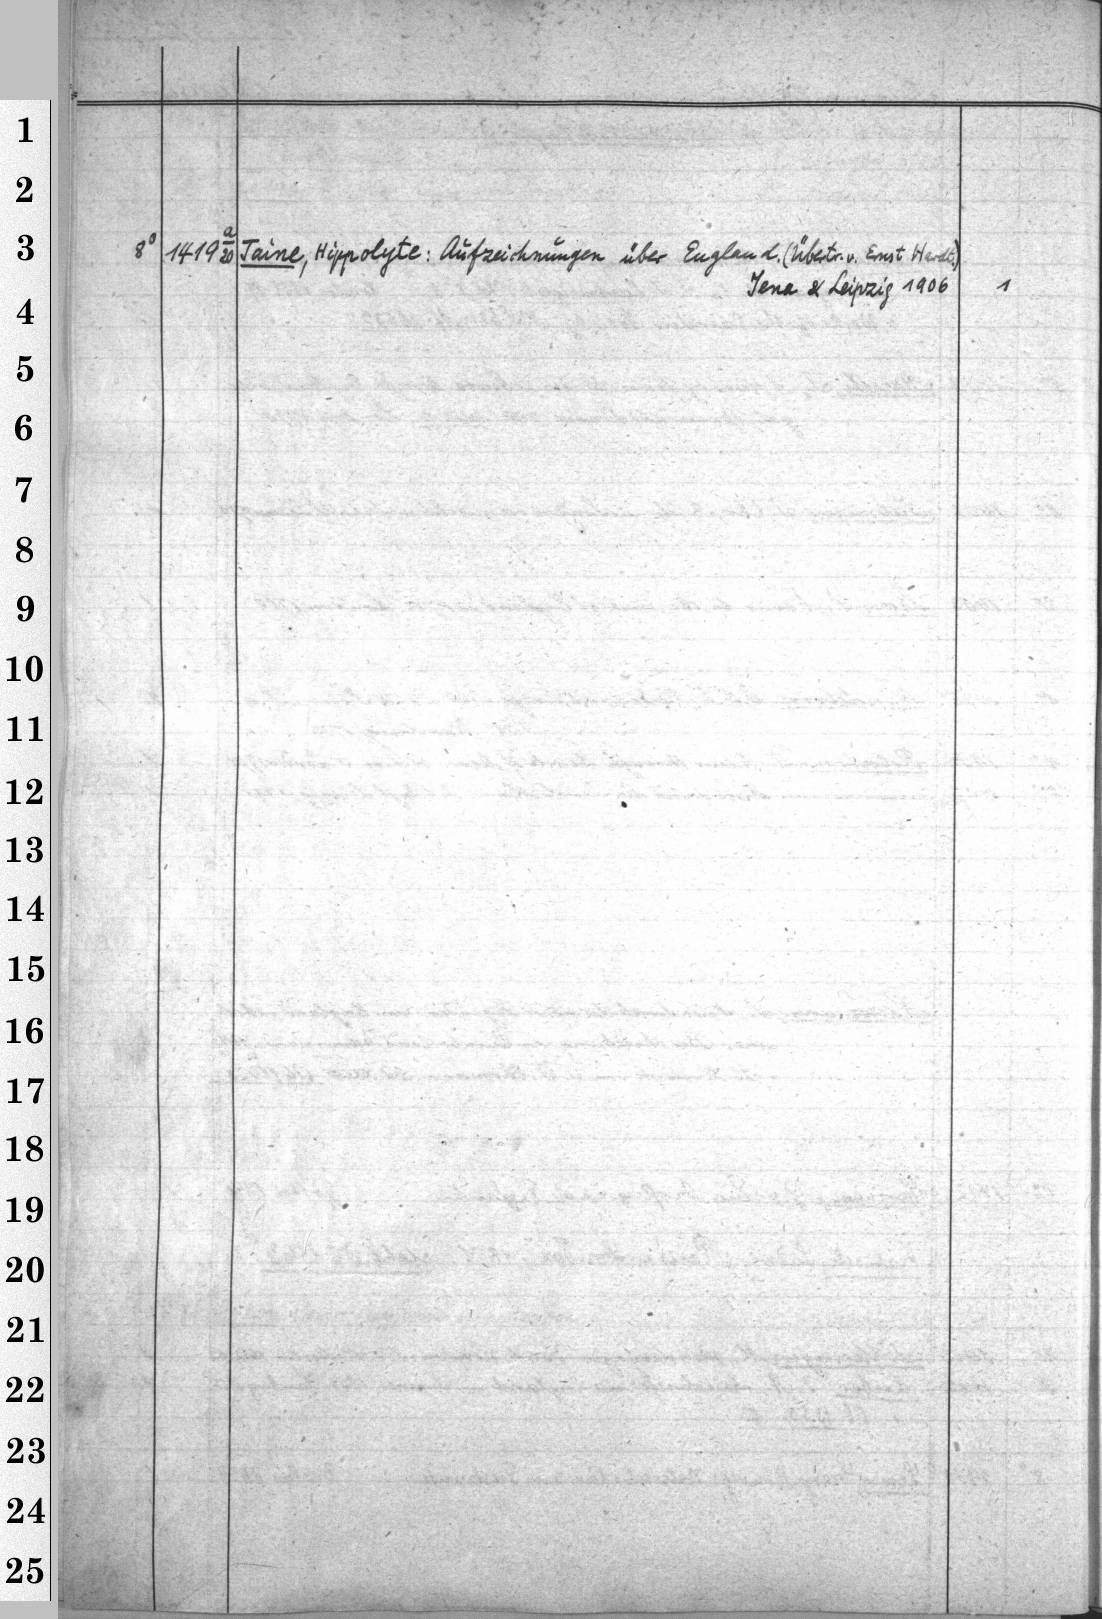 1
2
3
8⁰ 1419 a/20 Taine, Hippolyte: Aufzeichnungen über England. (Übertr. v. Ernst Hardt.)
Jena & Leipzig 1906 1
4
5
6
7
8
9
10
11
12
13
14
15
16
17
18
19
20
21
22
23
24
25